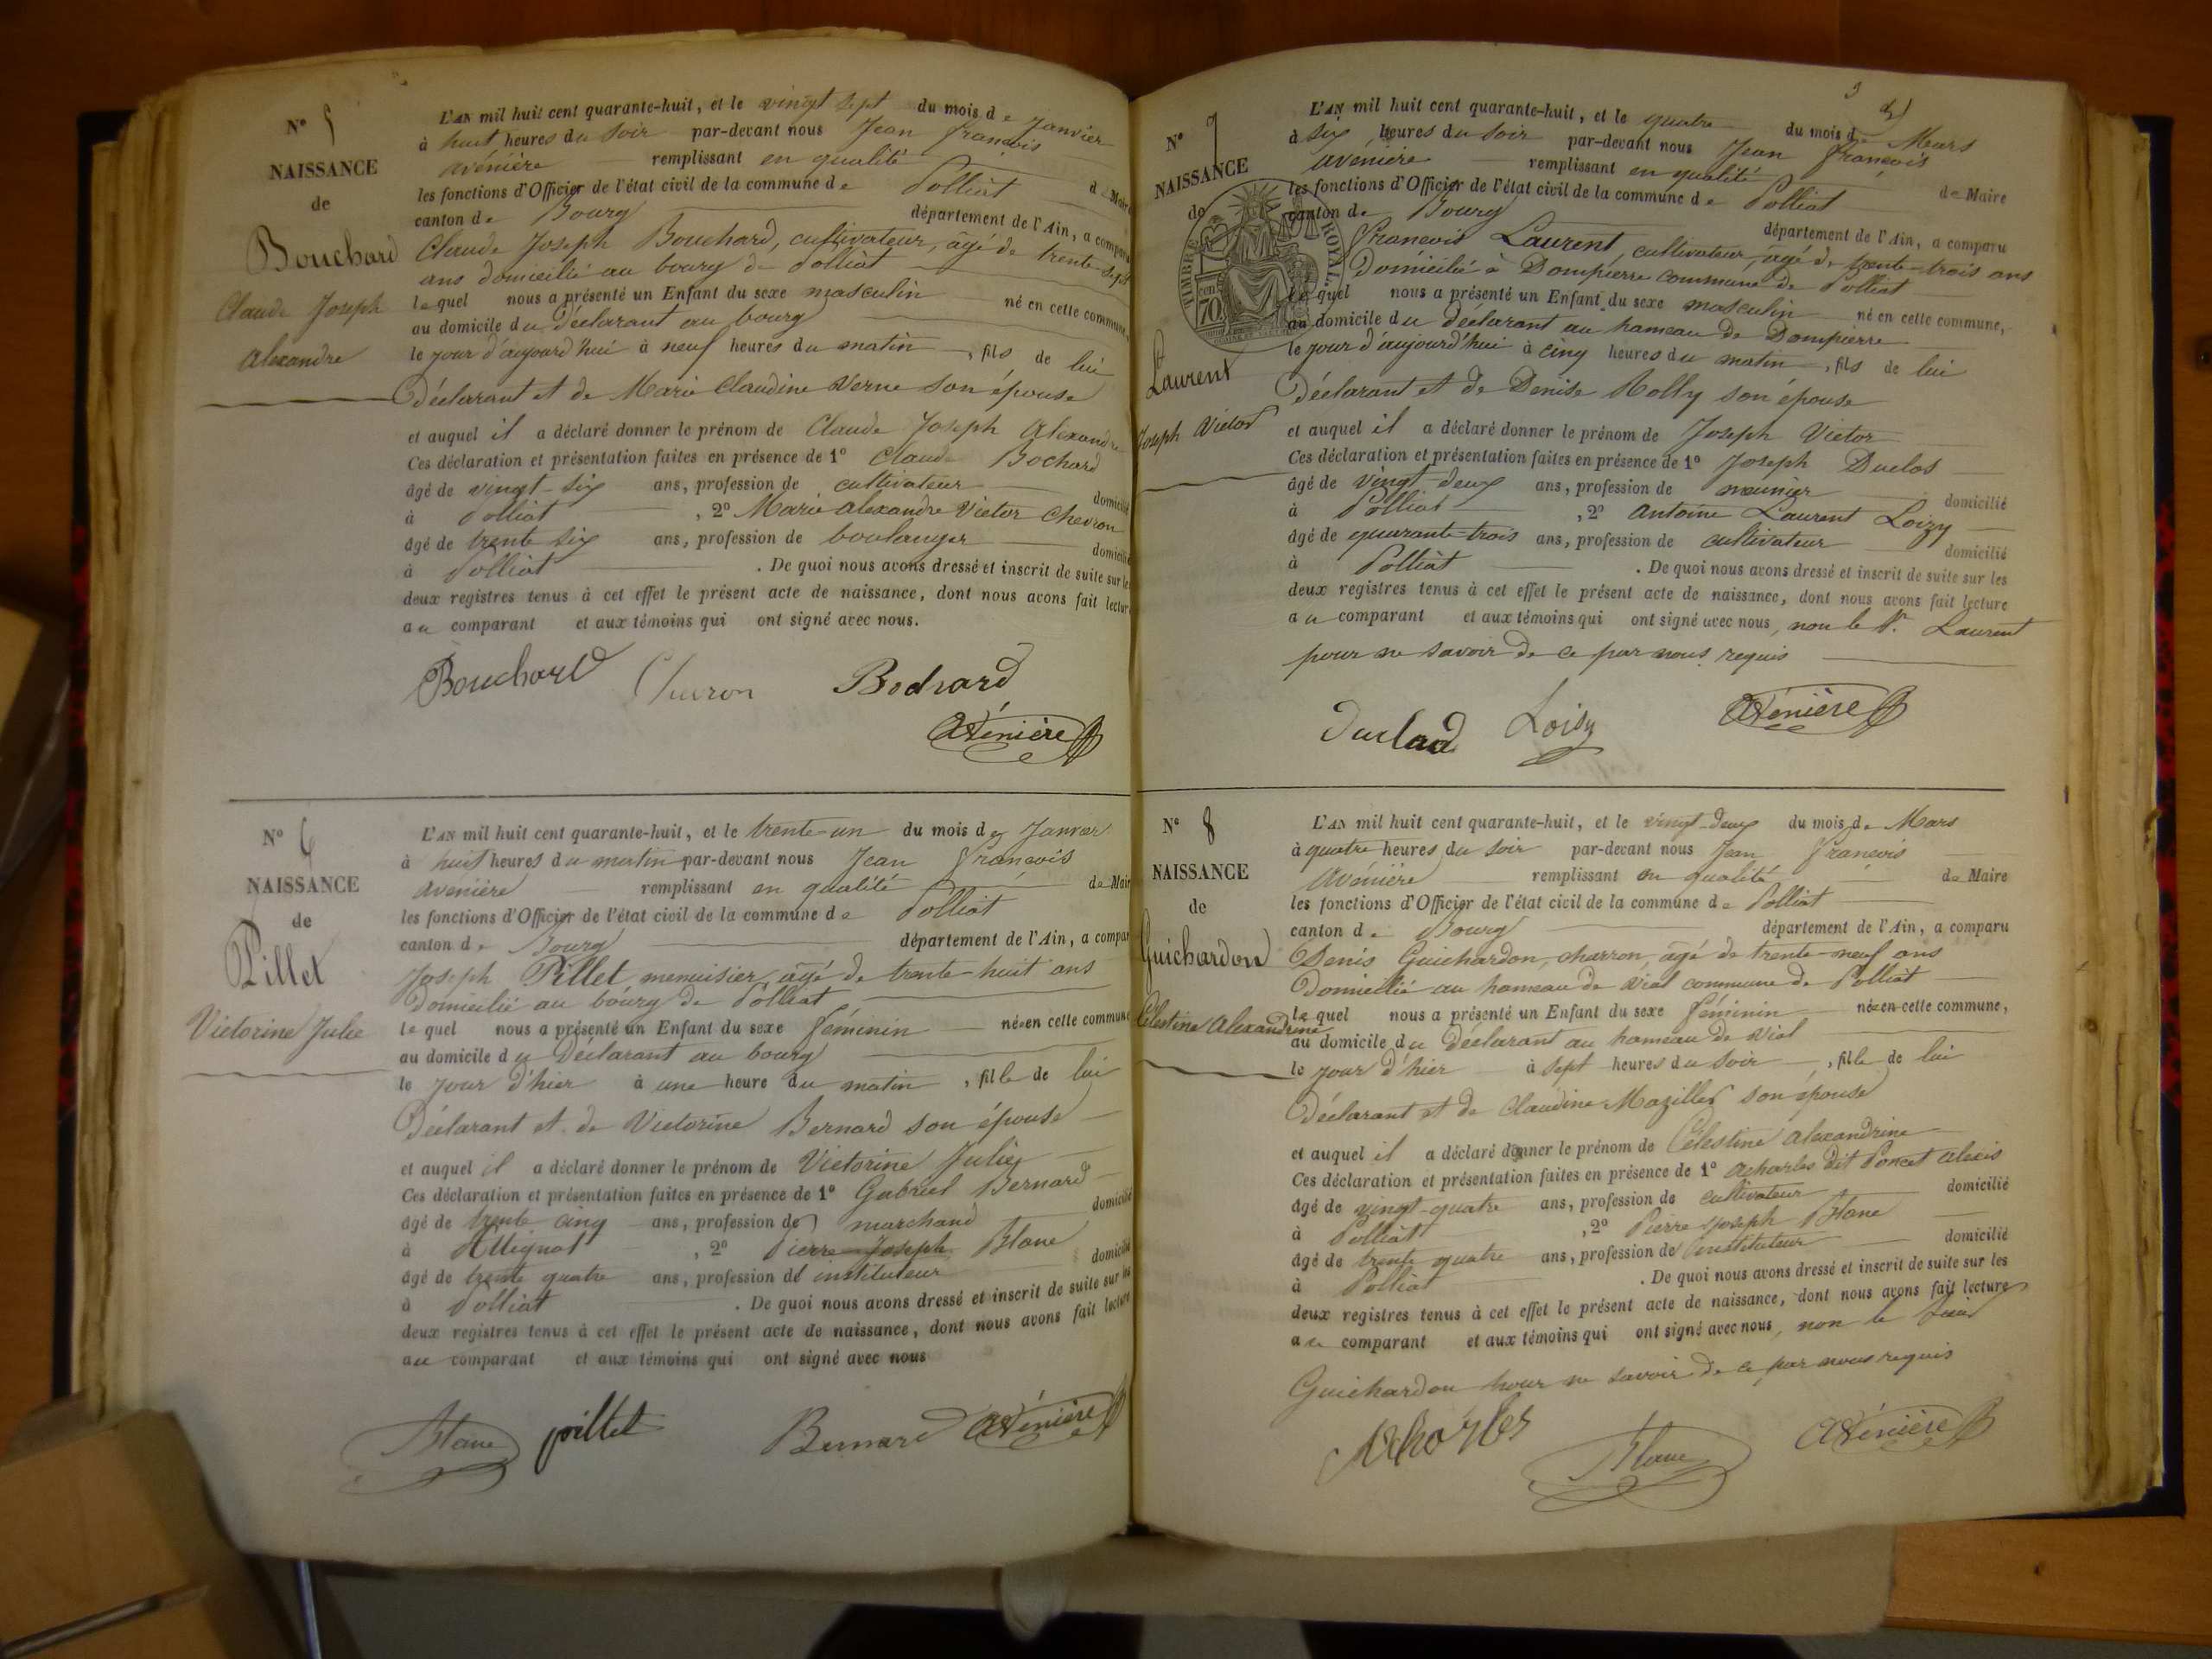 N° 5
NAISSANCE
de
Bouchard
Claude Joseph
Alexandre
L'AN mil huit cent quarante-huit, et le vingt sept du mois de Janvier
à huit heures du soir par-devant nous Jean François
avénière remplissant en qualité de Maire
les fonctions d'Officier de l'état civil de la commune de Polliat
canton de Bourg département de l'Ain, a comparu
Claude Joseph Bouchard, cultivateur, âgé de trente-sept
ans domicilié au bourg de Polliat
lequel nous a présenté un Enfant du sexe masculin né en cette commune,
au domicile du déclarant au bourg
le jour d'aujourd'hui à neuf heures du matin, fils de lui
Déclarant et de Marie Claudine Verne son épouse
et auquel il a déclaré donner le prénom de Claude Joseph Alexandre
Ces déclaration et présentation faites en présence de 1° Claude Bochard
âgé de vingt-six ans, profession de cultivateur domicilié
à Polliat, 2° Marie Alexandre Victor Chevron
âgé de trente six ans, profession de boulanger domicilié
à Polliat. De quoi nous avons dressé et inscrit de suite sur les
deux registres tenus à cet effet le présent acte de naissance, dont nous avons fait lecture
au comparant et aux témoins qui ont signé avec nous.
Bouchard Chevron Bochard
Avénière
N° 6
NAISSANCE
de
Pillet
Victorine Julie
L'AN mil huit cent quarante-huit, et le trente-un du mois de Janvier
à huit heures du matin par-devant nous Jean François
avenière remplissant en qualité de Maire
les fonctions d'Officier de l'état civil de la commune de Polliat
canton de Bourg département de l'Ain, a comparu
Joseph Pillet, menuisier, âgé de trente-huit ans
Domicilié au bourg de Polliat
lequel nous a présenté un Enfant du sexe féminin née en cette commune
au domicile du Déclarant au bourg
le jour d'hier à une heure du matin, fille de lui
Déclarant et de Victorine Bernard son épouse
et auquel il a déclaré donner le prénom de Victorine Julie
Ces déclaration et présentation faites en présence de 1° Gabriel Bernard
âgé de trente cinq ans, profession de marchand domicilié
à Attignat, 2° Pierre Joseph Blanc
âgé de trente quatre ans, profession de instituteur domicilié
à Polliat. De quoi nous avons dressé et inscrit de suite sur les
deux registres tenus à cet effet le présent acte de naissance, dont nous avons fait lecture
au comparant et aux témoins qui ont signé avec nous
Blanc pillet Bernard Avénière
3
N° 7
NAISSANCE
de
TIMBRE ROYAL
70
Laurent
Joseph Victor
L'AN mil huit cent quarante-huit, et le quatre du mois de Mars
à six heures du soir par-devant nous Jean François
avénière remplissant en qualité de Maire
les fonctions d'Officier de l'état civil de la commune de Polliat
canton de Bourg département de l'Ain, a comparu
François Laurent, cultivateur, âgé de trente-trois ans
Domicilié à Dompierre commune de Polliat
lequel nous a présenté un Enfant du sexe masculin né en cette commune,
au domicile du déclarant au hameau de Dompierre
le jour d'aujourd'hui à cinq heures du matin, fils de lui
Déclarant et de Denise Rolly son épouse
et auquel il a déclaré donner le prénom de Joseph Victor
Ces déclaration et présentation faites en présence de 1° Joseph Duclos
âgé de vingt-deux ans, profession de meunier domicilié
à Polliat, 2° Antoine Laurent Loizy
âgé de quarante-trois ans, profession de cultivateur domicilié
à Polliat. De quoi nous avons dressé et inscrit de suite sur les
deux registres tenus à cet effet le présent acte de naissance, dont nous avons fait lecture
au comparant et aux témoins qui ont signé avec nous, non le Sr. Laurent
pour ne savoir de ce par nous requis
Loisy Avénière
N° 8
NAISSANCE
de
Guichardon
Célestine Alexandrine
L'AN mil huit cent quarante-huit, et le vingt-deux du mois de Mars
à quatre heures du soir par-devant nous Jean François
Avénière remplissant en qualité de Maire
les fonctions d'Officier de l'état civil de la commune de Polliat
canton de Bourg département de l'Ain, a comparu
Denis Guichardon, charron, âgé de trente-neuf ans
Domicilié au hameau de Vial commune de Polliat
lequel nous a présenté un Enfant du sexe féminin née en cette commune,
au domicile du Déclarant au hameau de Vial
le jour d'hier à sept heures du soir, fille de lui
Déclarant et de Claudine Mazillet son épouse
et auquel il a déclaré donner le prénom de Célestine Alexandrine
Ces déclaration et présentation faites en présence de 1° acharles dit Poncet Alexis
âgé de vingt-quatre ans, profession de cultivateur domicilié
à Polliat, 2° Pierre Joseph Blanc
âgé de trente quatre ans, profession de instituteur domicilié
à Polliat. De quoi nous avons dressé et inscrit de suite sur les
deux registres tenus à cet effet le présent acte de naissance, dont nous avons fait lecture
au comparant et aux témoins qui ont signé avec nous, non le
Guichardon pour ne savoir de ce par nous requis
Acharles Blanc Avénière